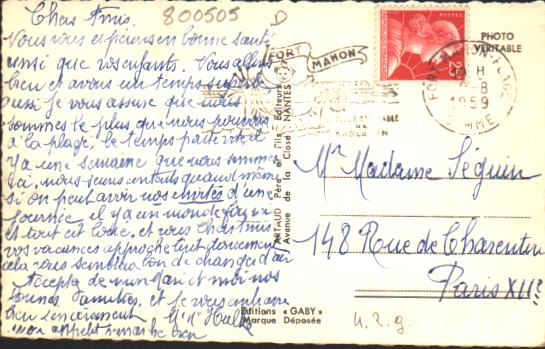 800505 D
Chers Amis.
Vous vous espérons en bonne santé
ainsi que vos enfants. Nous allons
bien et avons un temps superbe
aussi je vous assure que nous
sommes le plus que nous pouvons
à la plage, le temps passe vite il
y a une semaine que nous sommes
ici, nous serons contents quand même
si on peut avoir nos invités d'une
journée il y a un monde fou ici
et tout est loué. et vous chers amis
vos vacances approche tout doucement
cela vous semblera bon de changer d'air
Accepte de mon mari et moi nos
bonnes amitiés, et je vous embrasse
bien sincèrement
mon appétit marche bien
FORT MAHON
POSTES
PHOTO
VÉRITABLE
FORT-MAHON-PLAGE
H
-8
1959
SOMME
ARTAUD Père et Fils Éditeurs
Avenue de la Close NANTES
Mr Madame Séguin
148 Rue de Charenton
Paris XIIe
Éditions « GABY »
Marque Déposée